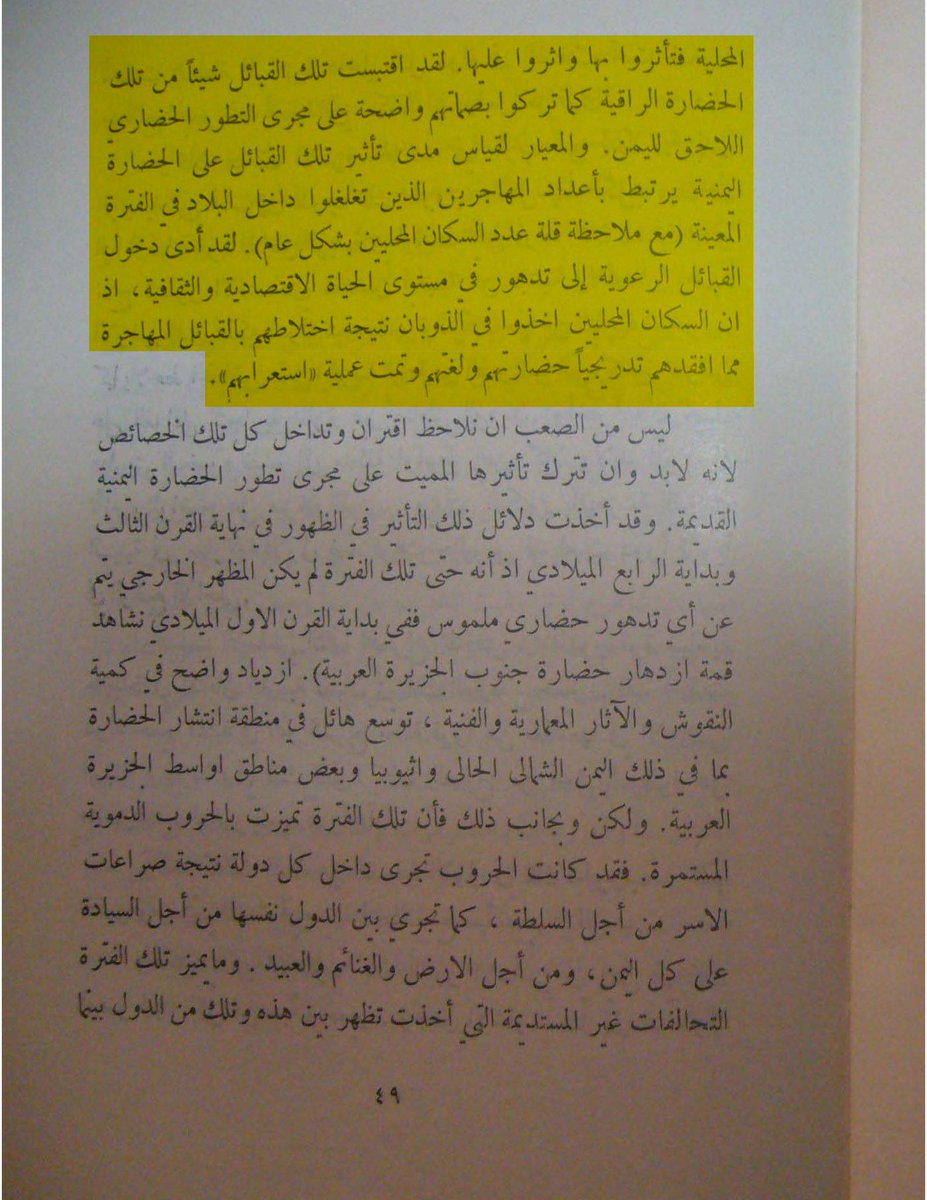 المحلية فتأثروا بها واثروا عليها. لقد اقتبست تلك القبائل شيئاً من تلك
الحضارة الراقية كما تركوا بصماتهم واضحة على مجرى التطور الحضاري
اللاحق لليمن. والمعيار لقياس مدى تأثير تلك القبائل على الحضارة
اليمنية يرتبط بأعداد المهاجرين الذين تغلغلوا داخل البلاد في الفترة
المعينة (مع ملاحظة قلة عدد السكان المحليين بشكل عام). لقد أدى دخول
القبائل الرعوية إلى تدهور في مستوى الحياة الاقتصادية والثقافية، اذ
ان السكان المحليين اخذوا في الذوبان نتيجة اختلاطهم بالقبائل المهاجرة
مما افقدهم تدريجياً حضارتهم ولغتهم وتمت عملية «استعرابهم».
ليس من الصعب ان نلاحظ اقتران وتداخل كل تلك الخصائص
لانه لابد وان تترك تأثيرها المميت على مجرى تطور الحضارة اليمنية
القديمة. وقد أخذت دلائل ذلك التأثير في الظهور في نهاية القرن الثالث
وبداية الرابع الميلادي اذ أنه حتى تلك الفترة لم يكن المظهر الخارجي يتم
عن أي تدهور حضاري ملموس ففي بداية القرن الاول الميلادي نشاهد
قمة ازدهار حضارة جنوب الجزيرة العربية). ازدياد واضح في كمية
النقوش والآثار المعمارية والفنية ، توسع هائل في منطقة انتشار الحضارة
بما في ذلك اليمن الشمالى الحالى واثيوبيا وبعض مناطق اواسط الجزيرة
العربية. ولكن وبجانب ذلك فأن تلك الفترة تميزت بالحروب الدموية
المستمرة. فقد كانت الحروب تجرى داخل كل دولة نتيجة صراعات
الاسر من أجل السلطة ، كما تجري بين الدول نفسها من أجل السيادة
على كل اليمن، ومن أجل الارض والغنائم والعبيد . ومايميز تلك الفترة
التحالفات غير المستديمة التي أخذت تظهر بين هذه وتلك من الدول بينما
٤٩